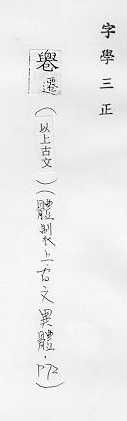 字學三正
遷(以上古文)(體製上·古文異體·P72)